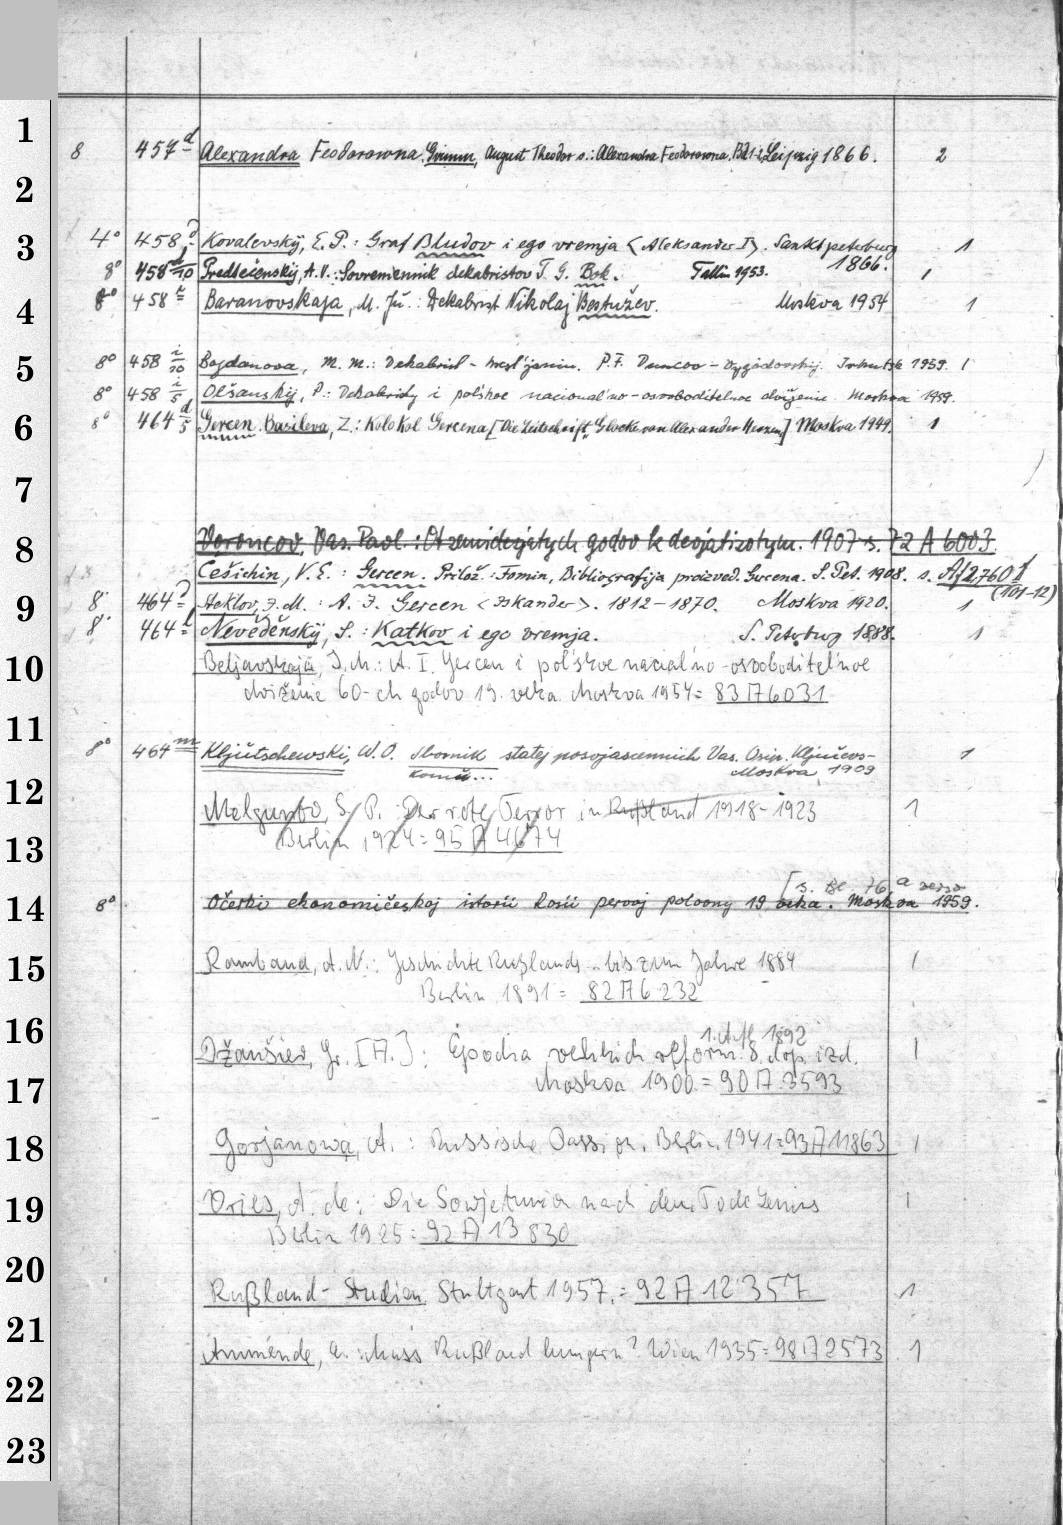 1
8 457 d Alexandra Feodorowna. Grimm, August Theodor v.: Alexandra Feodorowna. Bd 1-2, Leipzig 1866. 2
2
3
4° 458 Kovalevskij, E. P.: Graf Bludov i ego vremja <Aleksander I>. Sankt peterburg 1
1866.
8° 458 d/10 Predtečenskij, A. V.: Sovremennik dekabristov T. G. Bok. Tallin 1953. 1
4
8° 458 Baranovskaja, M. Ju.: Dekabrist Nikolaj Bestužev. Moskva 1954 1
5
8° 458 i/10 Bogdanova, M. M.: Dekabrist - krest'janin. P. F. Duncov - Vygodovskij. Irkutsk 1959. 1
8° 458 i/5 Olšanskij, P.: Dekabristy i pol'skoe nacional'no-osvoboditelnoe dviženie. Moskva 1959.
6
8° 464 d/5 Gercen. Basileva, Z.: Kolokol Gercena [Die Zeitschrift „Glocke von Alexander Herzen] Moskva 1949. 1
7
8
Voroncov, Vas. Pavl.: Ot semidesjatych godov k devjatisotym. 1907 s. 72 A 6003
Češichin, V. E.: Gercen. Prilož.: Fomin, Bibliografija proizved. Gercena. S. Pet. 1908. s. Af 2760 f
(101-12)
9
8° 464 Steklov, J. M.: A. J. Gercen <Iskander>. 1812-1870. Moskva 1920. 1
8° 464 Nevěděnskij, S.: Katkov i ego vremja. S. Peterburg 1888. 1
10
Beljavskaja, I. M.: A. I. Gercen i pol'skoe nacional'no-osvoboditel'noe
dviženie 60-ch godov 19. veka. Moskva 1954 = 83 A 6031
11
8° 464 m Kljutschewskij, W. O. Sbornik statej posvjascennich Vas. Osip. Ključevs-
komu... Moskva, 1909 1
12
Melgunov, S. P. Der rote Terror in Rußland 1918-1923 1
13
Berlin 1924 = 95 A 4674
[s. Bl. 76 a verso
14
8° Očerki ekonomičeskoj istorii Rosii pervoj polovny 19 veka. Moskva 1959.
15
Rambaud, A. N.: Geschichte Rußlands .. bis zum Jahre 1884 1
Berlin 1891 = 82 A 6232
16
1. Aufl. 1892
Džanšiev, Gr. [A.]: Epocha velikich reform. 8. dop. izd. 1
17
Moskva 1900. = 90 A 3593
18
Gorjanowa, A.: Russische Passion. Berlin 1941 = 93 A 11863 1
19
Vries, A. de: Die Sowjetunion nach dem Tode Lenins 1
Berlin 1925 = 92 A 13 830
20
Rußland-Studien. Stuttgart 1957. = 92 A 12 357 1
21
Ammende, E.: Muss Rußland hungern? Wien 1935 = 98 A 2573 1
22
23